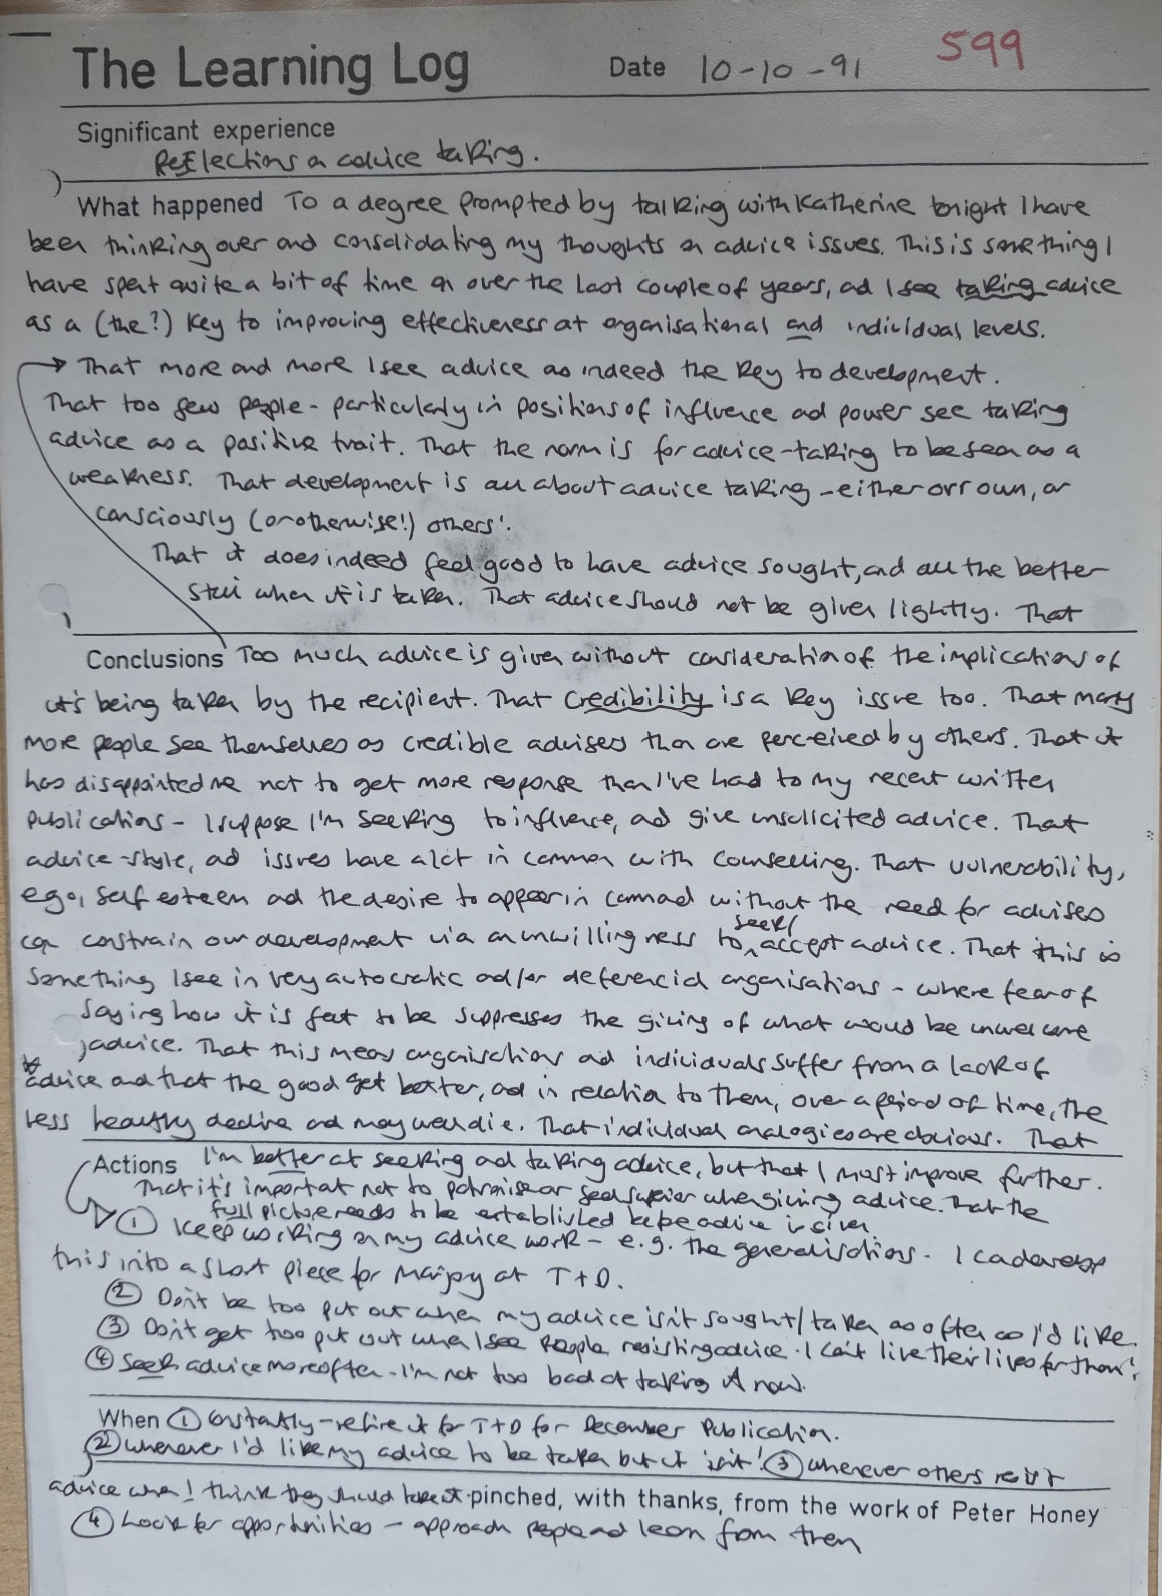 The Learning Log Date 10-10-91 599
Significant experience
Reflections on advice taking.
What happened To a degree prompted by talking with Katherine tonight I have
been thinking over and consolidating my thoughts on advice issues. This is something I
have spent quite a bit of time on over the last couple of years, and I see taking advice
as a (the?) key to improving effectiveness at organisational and individual levels.
That more and more I see advice as indeed the key to development.
That too few people - particularly in positions of influence and power see taking
advice as a positive trait. That the norm is for advice-taking to be seen as a
weakness. That development is all about advice taking - either our own, or
consciously (or otherwise!) others'.
That it does indeed feel good to have advice sought, and all the better
still when it is taken. That advice should not be given lightly. That
Conclusions Too much advice is given without consideration of the implications of
it's being taken by the recipient. That credibility is a key issue too. That many
more people see themselves as credible advisers than are perceived by others. That it
has disappointed me not to get more response than I've had to my recent written
publications - I suppose I'm seeking to influence, and give unsolicited advice. That
advice-style, and issues have a lot in common with counselling. That vulnerability,
ego, self esteem and the desire to appear in command without the need for advisers
can constrain our development via an unwillingness to seek/ accept advice. That this is
something I see in very autocratic and/or deferencial organisations - where fear of
saying how it is felt to be suppresses the giving of what would be unwelcome
advice. That this means organisations and individuals suffer from a lack of
advice and that the good get better, and in relation to them, over a period of time, the
less healthy decline and may well die. That individual analogies are obvious. That
Actions I'm better at seeking and taking advice, but that I must improve further.
That it's important not to patronise or feel superior when giving advice. That the
full picture needs to be established before advice is given.
① Keep working on my advice work - e.g. the generalisations. I can develop
this into a short piece for Marjory at T+D.
② Don't be too put out when my advice isn't sought/taken as often as I'd like.
③ Don't get too put out when I see people resisting advice. I can't live their lives for them!
④ Seek advice more often. I'm not too bad at taking it now.
When ① Constantly - refine it for T+D for December Publication.
② Whenever I'd like my advice to be taken but it isn't! ③ Whenever others resist
advice when I think they should take it. pinched, with thanks, from the work of Peter Honey
④ Look for opportunities - approach people and learn from them